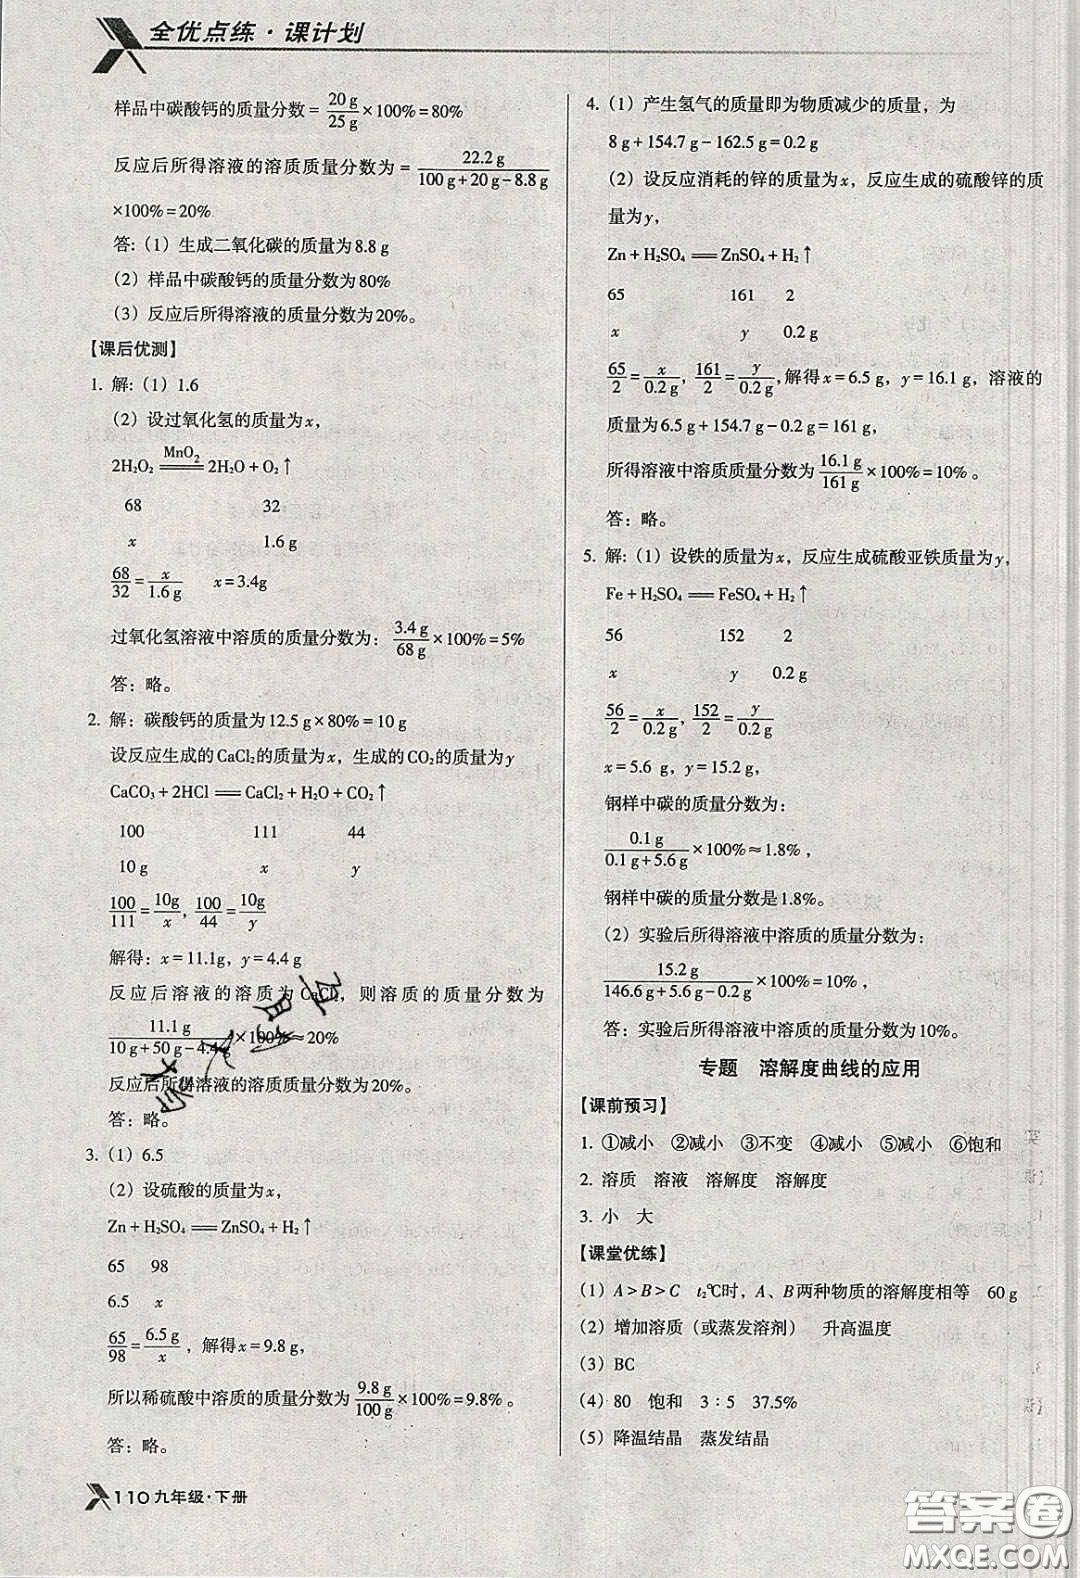 全优点练·课计划
样品中碳酸钙的质量分数=20 g/25 g×100%=80%
反应后所得溶液的溶质质量分数为=22.2 g/(100 g+20 g-8.8 g)
×100%=20%
答:(1)生成二氧化碳的质量为8.8 g
(2)样品中碳酸钙的质量分数为80%
(3)反应后所得溶液的质量分数为20%。
【课后优测】
1. 解:(1)1.6
(2)设过氧化氢的质量为x,
2H₂O₂ =MnO₂= 2H₂O+O₂↑
68 32
x 1.6 g
68/32=x/1.6 g x=3.4g
过氧化氢溶液中溶质的质量分数为:3.4 g/68 g×100%=5%
答:略。
2. 解:碳酸钙的质量为12.5 g×80%=10 g
设反应生成的CaCl₂的质量为x,生成的CO₂的质量为y
CaCO₃+2HCl══CaCl₂+H₂O+CO₂↑
100 111 44
10 g x y
100/111=10g/x,100/44=10g/y
解得:x=11.1g,y=4.4 g
反应后溶液的溶质为CaCl₂,则溶质的质量分数为
11.1 g/(10 g+50 g-4.4 g)×100%≈20%
反应后所得溶液的溶质质量分数为20%。
答:略。
3.(1)6.5
(2)设硫酸的质量为x,
Zn+H₂SO₄══ZnSO₄+H₂↑
65 98
6.5 x
65/98=6.5 g/x,解得x=9.8 g,
所以稀硫酸中溶质的质量分数为9.8 g/100 g×100%=9.8%。
答:略。
110九年级·下册
4.(1)产生氢气的质量即为物质减少的质量,为
8 g+154.7 g-162.5 g=0.2 g
(2)设反应消耗的锌的质量为x,反应生成的硫酸锌的质
量为y,
Zn+H₂SO₄══ZnSO₄+H₂↑
65 161 2
x y 0.2 g
65/2=x/0.2 g,161/2=y/0.2 g,解得x=6.5 g,y=16.1 g,溶液的
质量为6.5 g+154.7 g-0.2 g=161 g,
所得溶液中溶质质量分数为16.1 g/161 g×100%=10%。
答:略。
5. 解:(1)设铁的质量为x,反应生成硫酸亚铁质量为y,
Fe+H₂SO₄══FeSO₄+H₂↑
56 152 2
x y 0.2 g
56/2=x/0.2 g,152/2=y/0.2 g
x=5.6 g,y=15.2 g,
钢样中碳的质量分数为:
0.1 g/(0.1 g+5.6 g)×100%≈1.8%,
钢样中碳的质量分数是1.8%。
(2)实验后所得溶液中溶质的质量分数为:
15.2 g/(146.6 g+5.6 g-0.2 g)×100%=10%,
答:实验后所得溶液中溶质的质量分数为10%。
专题 溶解度曲线的应用
【课前预习】
1. ①减小 ②减小 ③不变 ④减小 ⑤减小 ⑥饱和
2. 溶质 溶液 溶解度 溶解度
3. 小 大
【课堂优练】
(1)A>B>C t₂℃时,A、B两种物质的溶解度相等 60 g
(2)增加溶质(或蒸发溶剂) 升高温度
(3)BC
(4)80 饱和 3∶5 37.5%
(5)降温结晶 蒸发结晶
答案圈
MXQE.COM